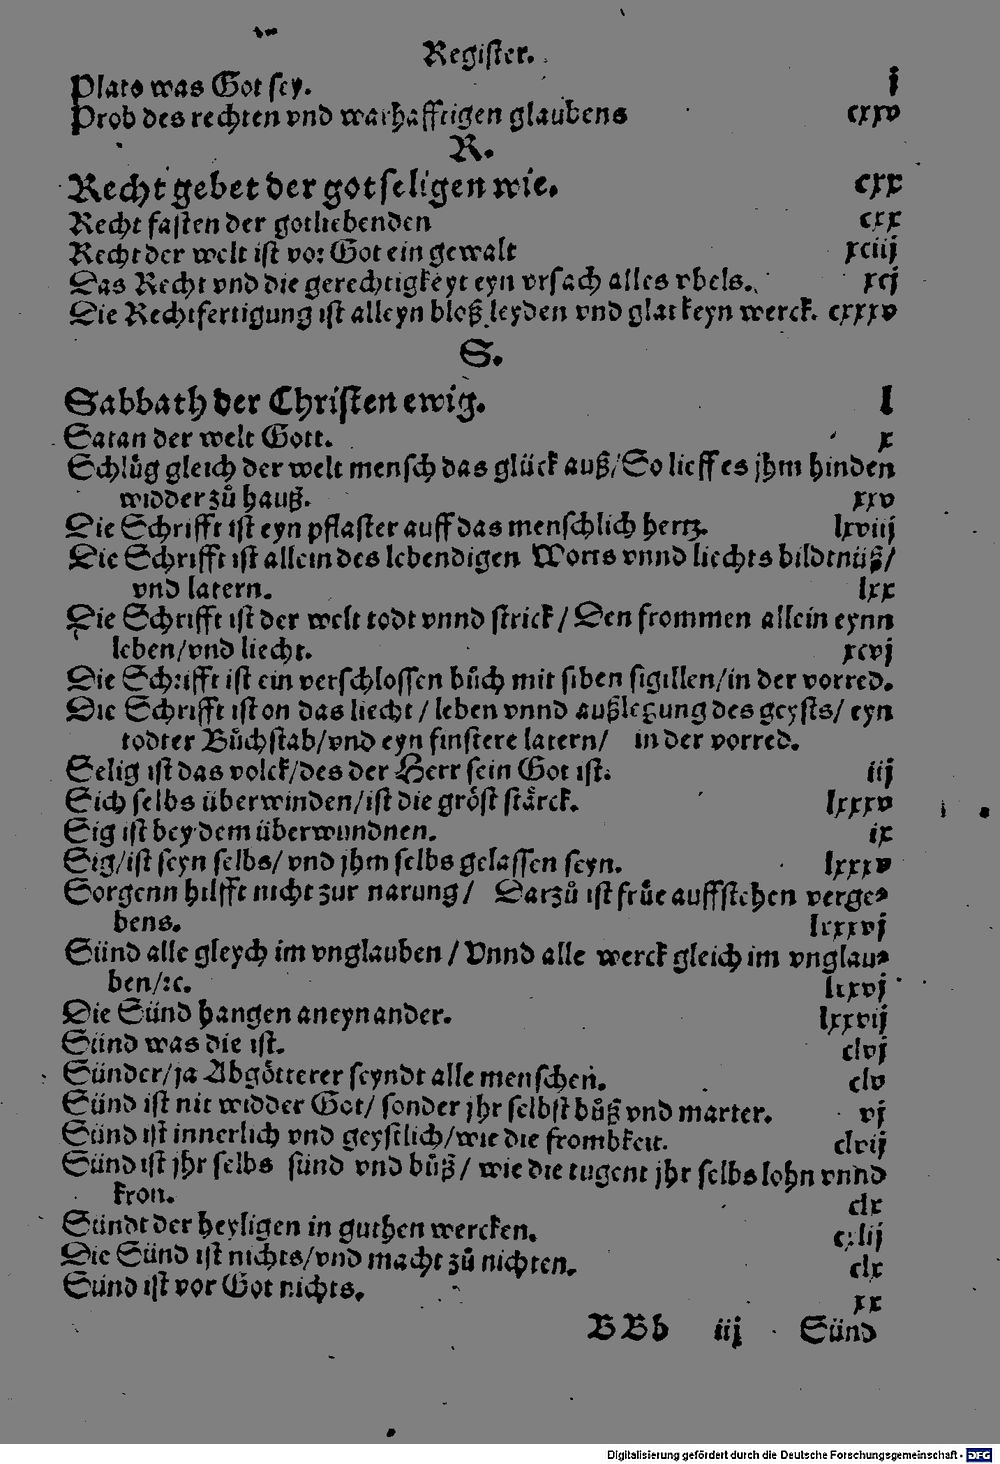 Register.
Plato was Got sey. j
Prob des rechten vnd warhafftigen glaubens cxxv
R.
Recht gebet der gotseligen wie. cxx
Recht fasten der gotliebenden cxx
Recht der welt ist vor Got ein gewalt xciij
Das Recht vnd die gerechtigkeyt eyn vrsach alles vbels. xcj
Die Rechtfertigung ist alleyn bloß leyden vnd glat keyn werck. cxxxv
S.
Sabbath der Christen ewig. l
Satan der welt Gott. x
Schlůg gleich der welt mensch das glück auß/So lieff es jhm hinden
widder zů hauß. xxv
Die Schrifft ist eyn pflaster auff das menschlich hertz. lxviij
Die Schrifft ist allein des lebendigen Worts vnnd liechts bildtnüß/
vnd latern. lxx
Die Schrifft ist der welt todt vnnd strick / Den frommen allein eynn
leben/vnd liecht. xcvj
Die Schrifft ist ein verschlossen bůch mit siben sigillen/in der vorred.
Die Schrifft ist on das liecht / leben vnnd außlegung des geysts/ eyn
todter Bůchstab/vnd eyn finstere latern/ in der vorred.
Selig ist das volck/des der Herr sein Got ist. iij
Sich selbs überwinden/ist die gröst stärck. lxxxv
Sig ist bey dem überwundnen. ix
Sig/ist seyn selbs/ vnd jhm selbs gelassen seyn. lxxxv
Sorgenn hilfft nicht zur narung / Darzů ist frůe auffstehen verge⸗
bens. lxxxvj
Sünd alle gleych im vnglauben / Vnnd alle werck gleich im vnglau⸗
ben/ꝛc. lxxvj
Die Sünd hangen aneynander. lxxvij
Sünd was die ist. clvj
Sünder/ja Abgötterer seyndt alle menschen. clv
Sünd ist nit widder Got/ sonder jhr selbst bůß vnd marter. vj
Sünd ist innerlich vnd geystlich/wie die frombkeit. clvij
Sünd ist jhr selbs sünd vnd bůß/ wie die tugent jhr selbs lohn vnnd
kron. clx
Sündt der heyligen in guthen wercken. cxlij
Die Sünd ist nichts/vnd macht zů nichten. clx
Sünd ist vor Got nichts. xx
BBb iij Sünd
Digitalisierung gefördert durch die Deutsche Forschungsgemeinschaft - DFG